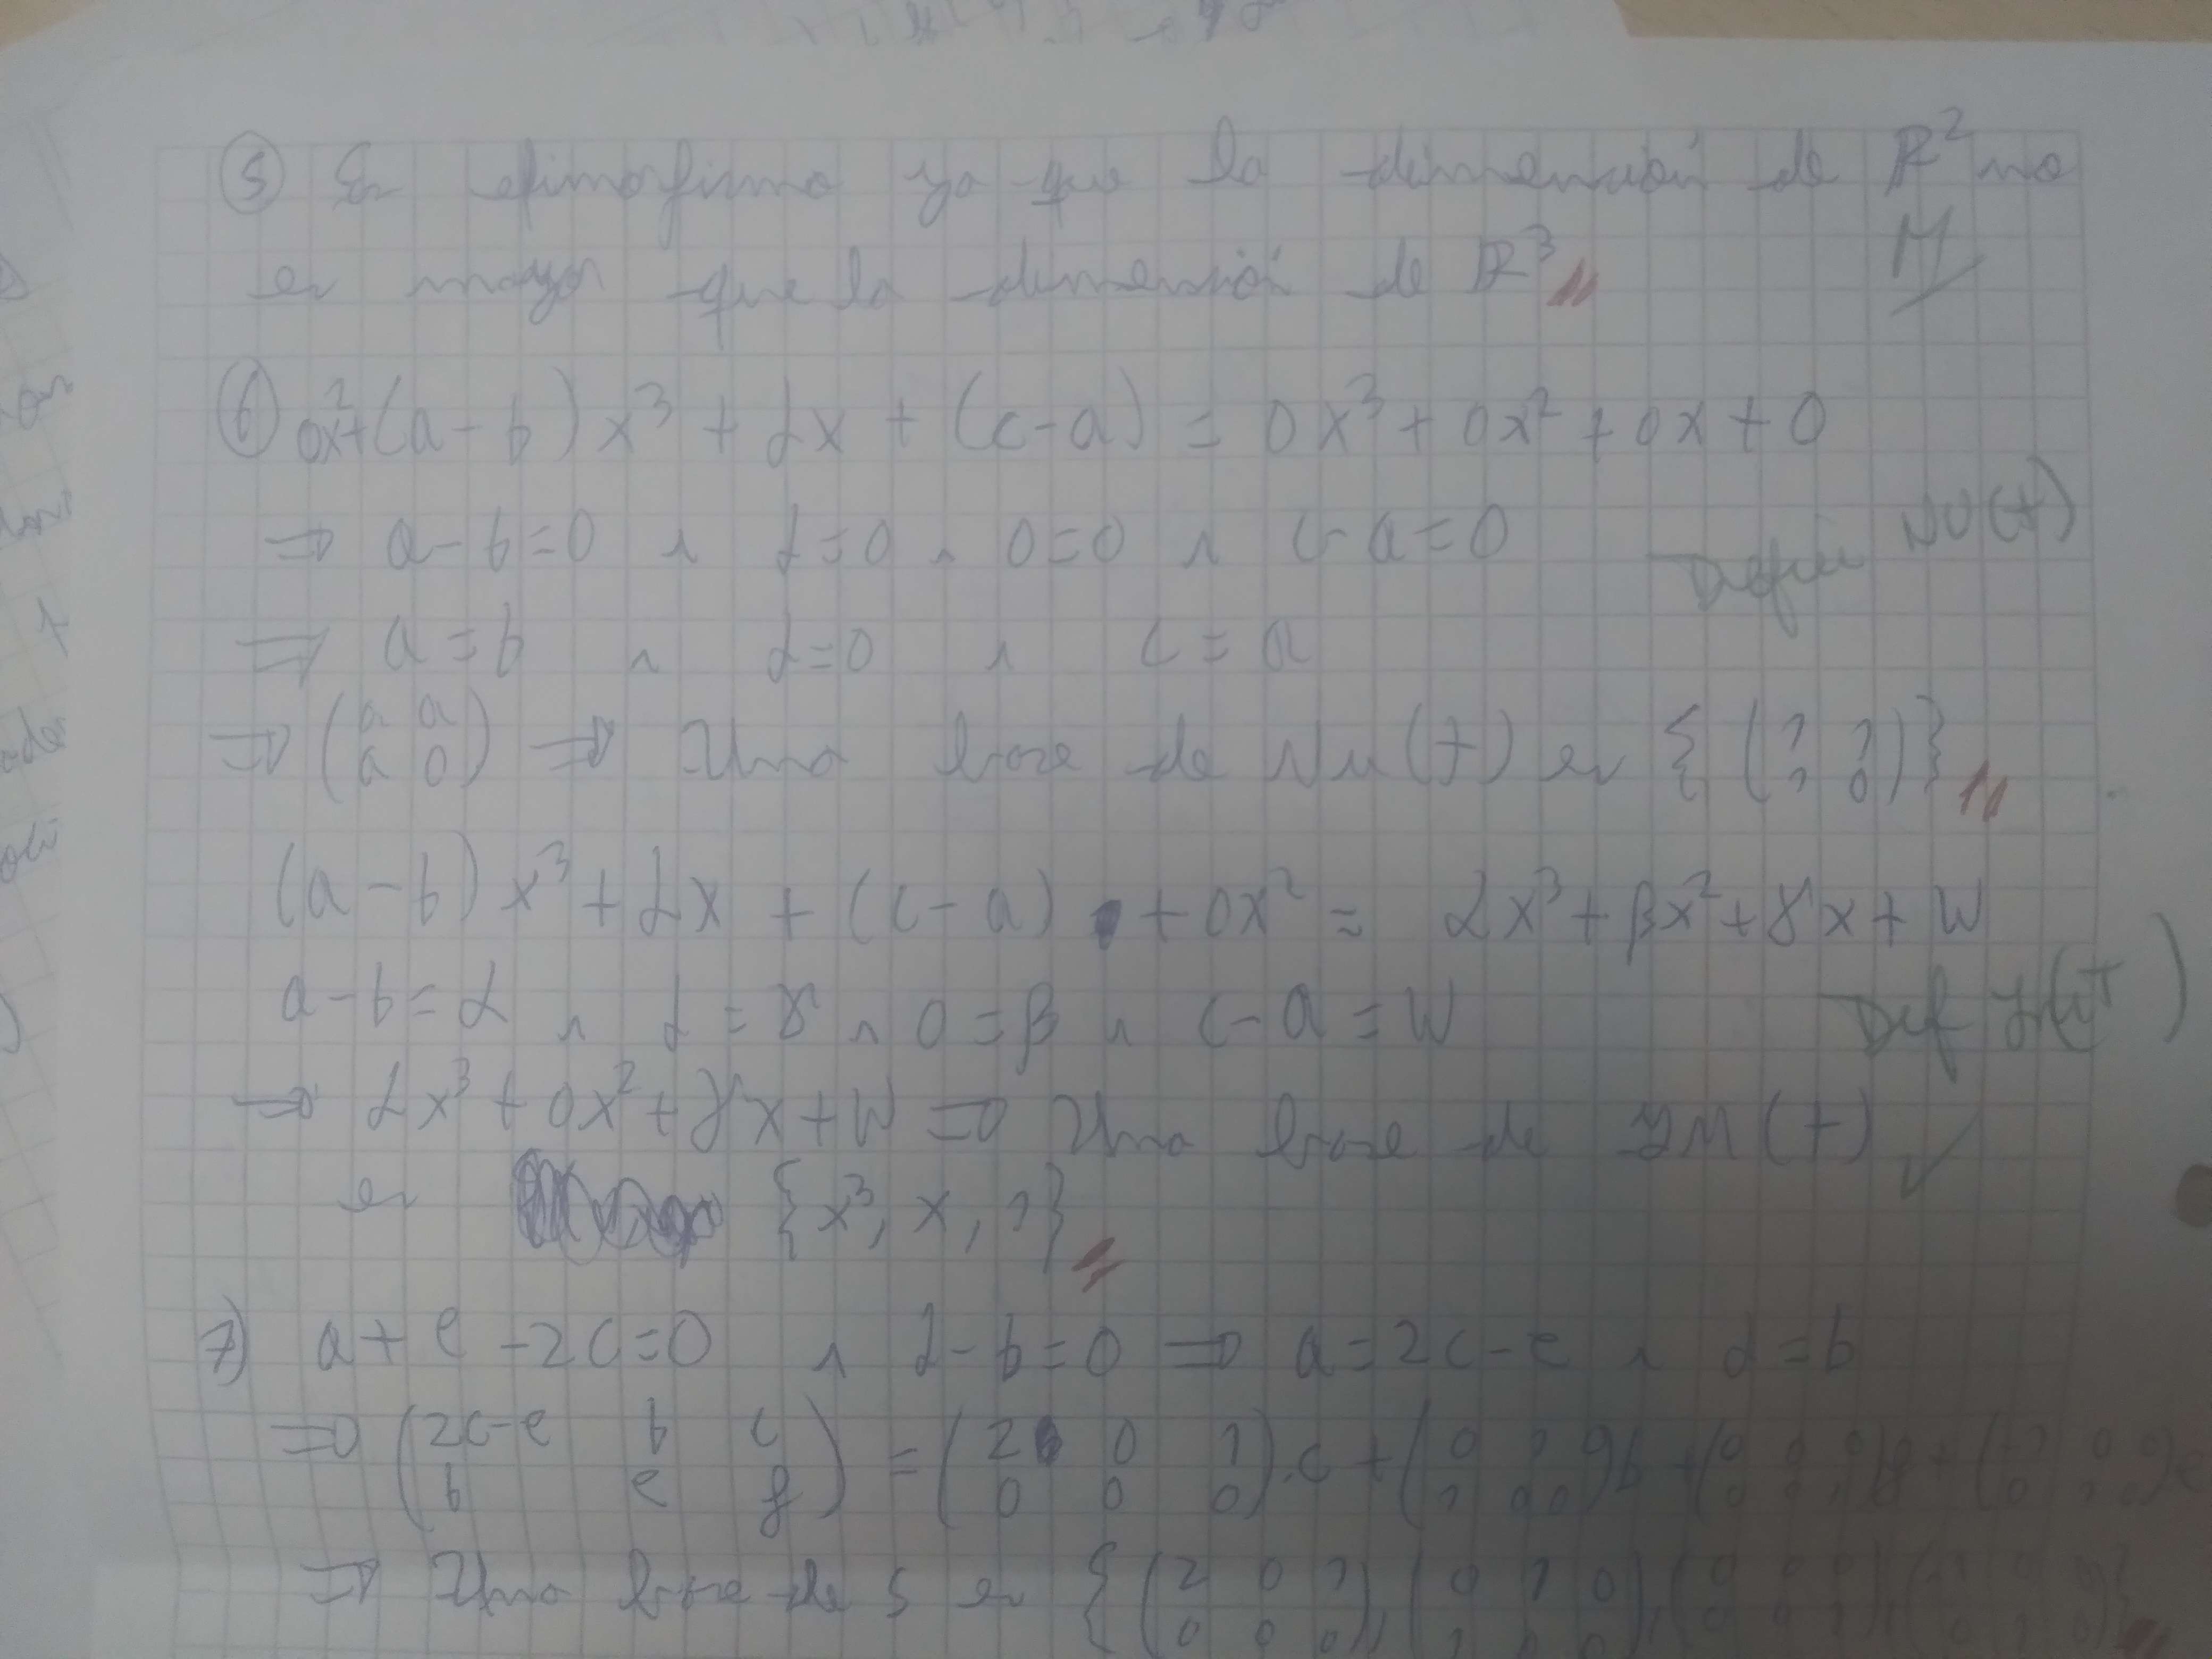 ⑤ Es epimorfismo ya que la dimensión de R² no
es mayor que la dimensión de R³ //
M
⑥ 0x²+(a-b)x³ + dx + (c-a) = 0x³ + 0x² + 0x + 0
⇒ a-b=0 ∧ d=0 ∧ 0=0 ∧ c-a=0
Definir NU(T)
⇒ a=b ∧ d=0 ∧ c=a
⇒ (a a / a 0) ⇒ Una base de Nu(T) es {(1 1 / 1 0)} //
(a-b)x³ + dx + (c-a) + 0x² = αx³ + βx² + γx + W
a-b=α ∧ d=γ ∧ 0=β ∧ c-a=W
Def Im(T)
⇒ αx³ + 0x² + γx + W ⇒ Una base de IM(T) ✓
es {x³, x, 1} //
7) a+e-2c=0 ∧ d-b=0 ⇒ a=2c-e ∧ d=b
⇒ (2c-e b c / b e f) = (2 0 1 / 0 0 0).c + (0 1 0 / 1 0 0)b + (0 0 0 / 0 0 1)f + (-1 0 0 / 0 1 0)e
⇒ Una base de S es {(2 0 1 / 0 0 0), (0 1 0 / 1 0 0), (0 0 0 / 0 0 1), (-1 0 0 / 0 1 0)} //